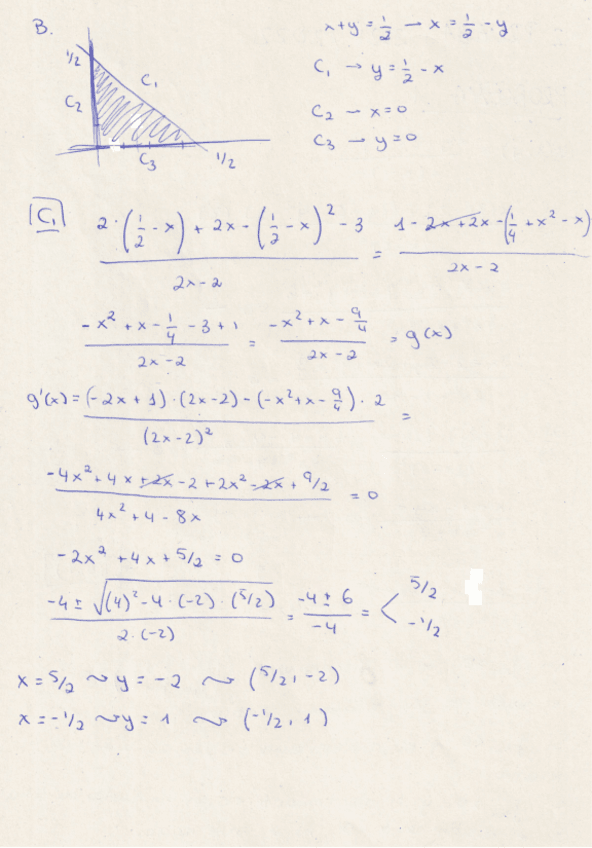 B.
x+y = 1/2 → x = 1/2 - y
1/2
C₁
C₁ → y = 1/2 - x
C₂
C₂ → x=0
C₃ → y=0
C₃
1/2
C₁
(2·(1/2 - x) + 2x - (1/2 - x)² - 3)/(2x-2) = (1 - 2x + 2x - (1/4 + x² - x))/(2x-2)
(-x² + x - 1/4 - 3 + 1)/(2x-2) = (-x² + x - 9/4)/(2x-2) = g(x)
g'(x) = ((-2x+1)·(2x-2) - (-x²+x-9/4)·2)/(2x-2)² =
(-4x² + 4x + 2x - 2 + 2x² - 2x + 9/2)/(4x² + 4 - 8x) = 0
-2x² + 4x + 5/2 = 0
(-4 ± √((4)² - 4·(-2)·(5/2)))/(2·(-2)) = (-4 ± 6)/(-4) = < 5/2
-1/2
x = 5/2 ⤳ y = -2 ⤳ (5/2, -2)
x = -1/2 ⤳ y = 1 ⤳ (-1/2, 1)